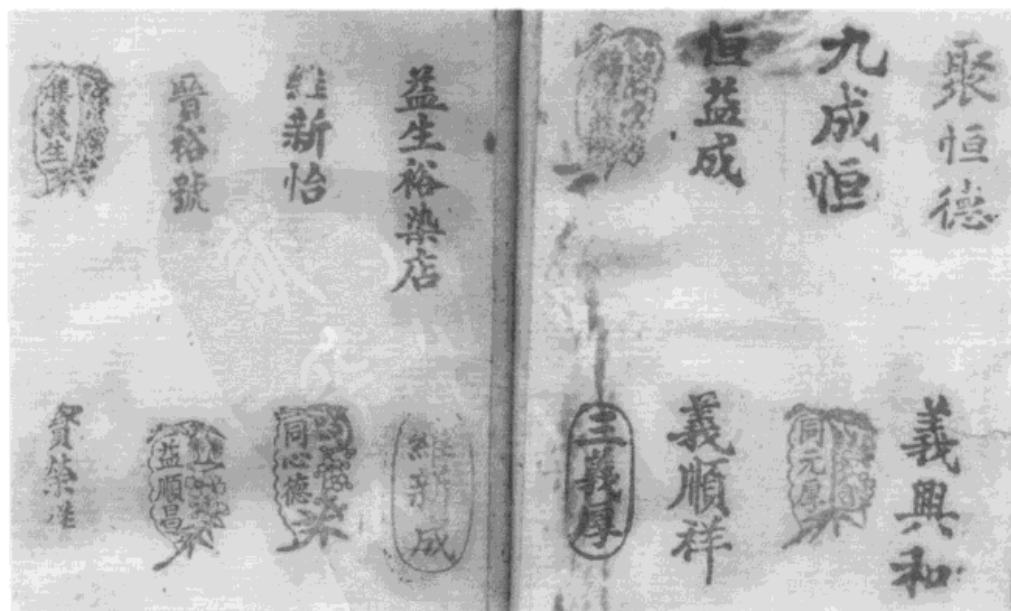 聚恒德
九成恒
恒益成
義興和
同元厚
義順祥
三義厚
益生裕染店
維新怡
晉裕號
維新成
同心德
益順昌